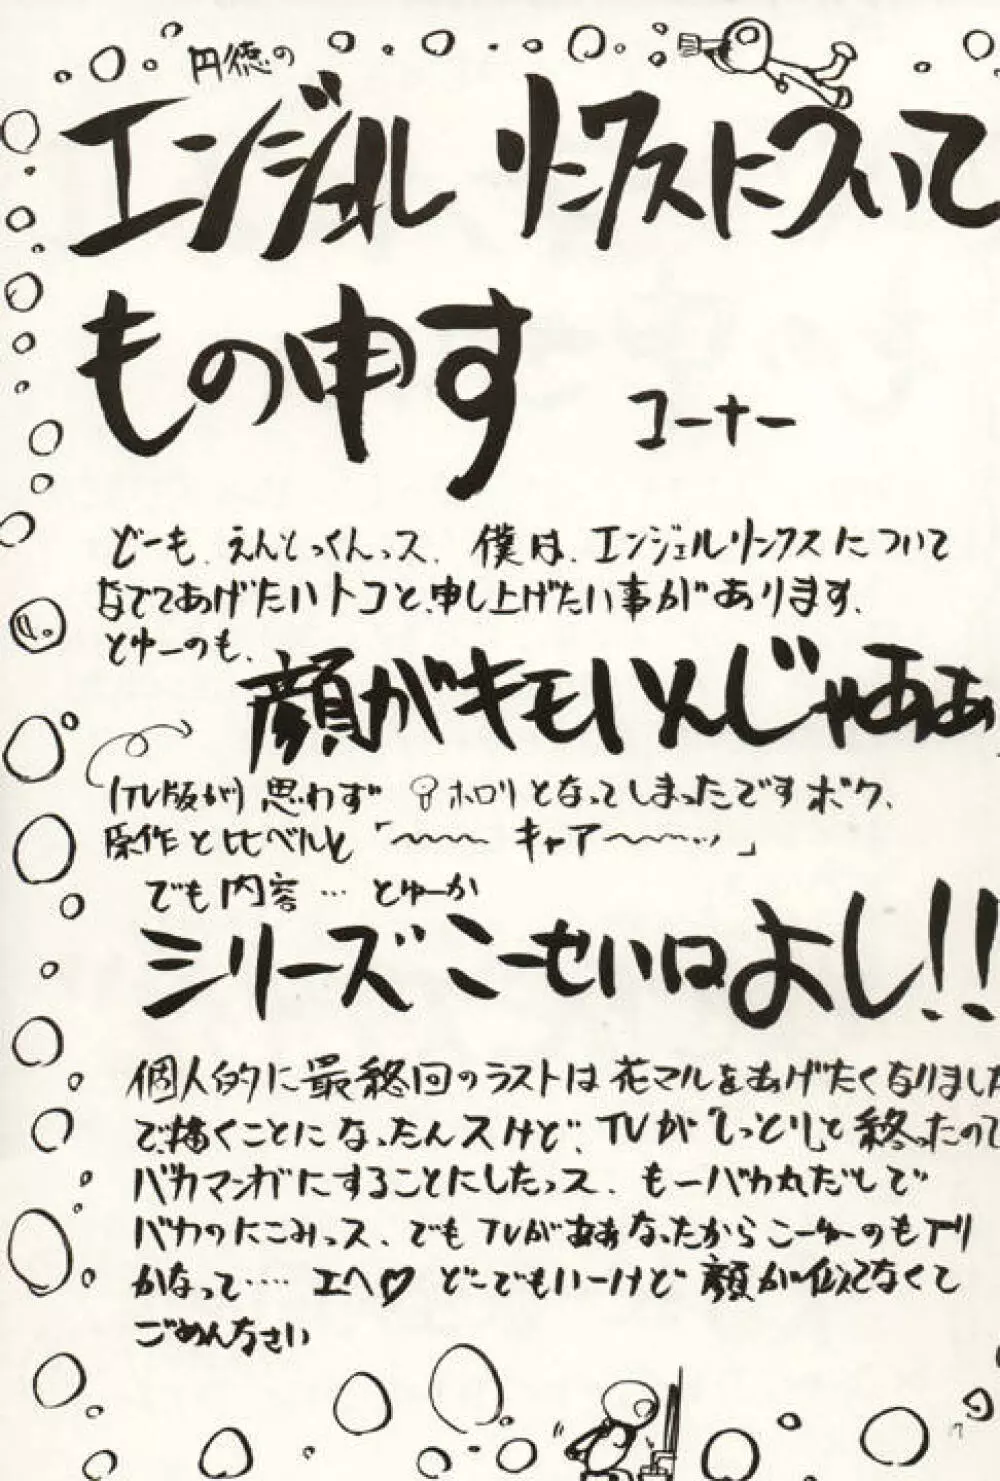 円徳の
エンジェルリンクスについて
もの申す コーナー
どーも、えんとっくんっス、僕は、エンジェルリンクスについて
なでてあげたいトコと、申し上げたい事があります、
とゆーのも、
顔がキモいんじゃあぁ
(TV版が) 思わず ホロリとなってしまったですボク、
原作と比べると「〜〜〜 キャア〜〜〜ッ」
でも内容…とゆーか
シリーズこーせいはよし!!
個人的に最終回のラストは花マルをあげたくなりました
で、描くことになったんスけど、TVが「しっとり」と終ったので
バカマンガにすることにしたっス、もーバカ丸だしで
バカのにこみっス、でもTVがああなったからこーゆーのもアリ
かなって…‥ エヘ♡ どこでもいーけど顔が似てなくて
ごめんなさい